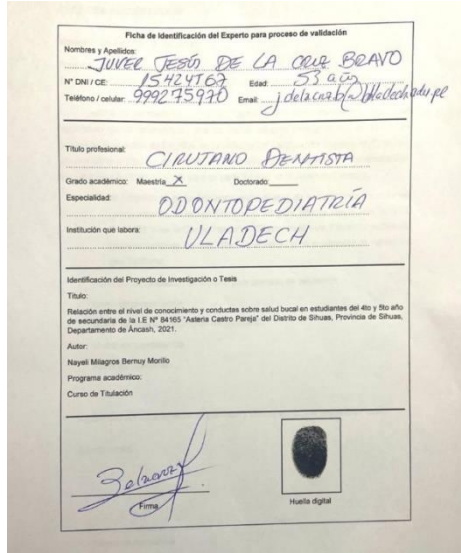 Ficha de Identificación del Experto para proceso de validación
Nombres y Apellidos:
JUVER JESÚS DE LA CRUZ BRAVO
N° DNI / CE: 15424167 Edad: 53 años
Teléfono / celular: 999275970 Email:
Título profesional:
CIRUJANO DENTISTA
Grado académico: Maestría X Doctorado:
Especialidad:
ODONTOPEDIATRÍA
Institución que labora:
ULADECH
Identificación del Proyecto de Investigación o Tesis
Título:
Relación entre el nivel de conocimiento y conductas sobre salud bucal en estudiantes del 4to y 5to año
de secundaria de la I.E N° 84165 "Asteria Castro Pareja" del Distrito de Sihuas, Provincia de Sihuas,
Departamento de Áncash, 2021.
Autor:
Nayeli Milagros Bernuy Morillo
Programa académico:
Curso de Titulación
Firma
Huella digital